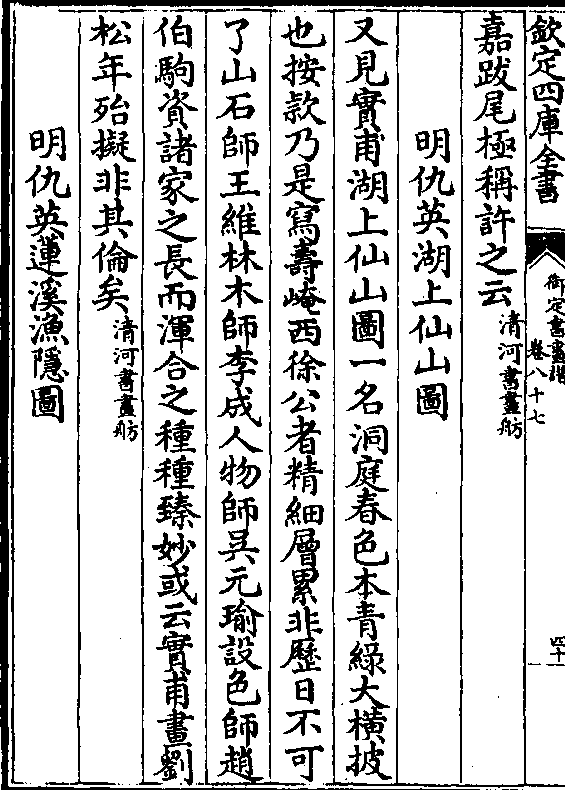 欽定四庫全書
御定書畫譜
卷八十七
四十
嘉跋尾極稱許之云清河書畫舫
明仇英湖上仙山圖
又見實甫湖上仙山圖一名洞庭春色本青綠大橫披
也按款乃是寫壽崦西徐公者精細層累非歷日不可
了山石師王維林木師李成人物師吳元瑜設色師趙
伯駒資諸家之長而渾合之種種臻妙或云實甫畫劉
松年殆擬非其倫矣清河書畫舫
明仇英蓮溪漁隱圖